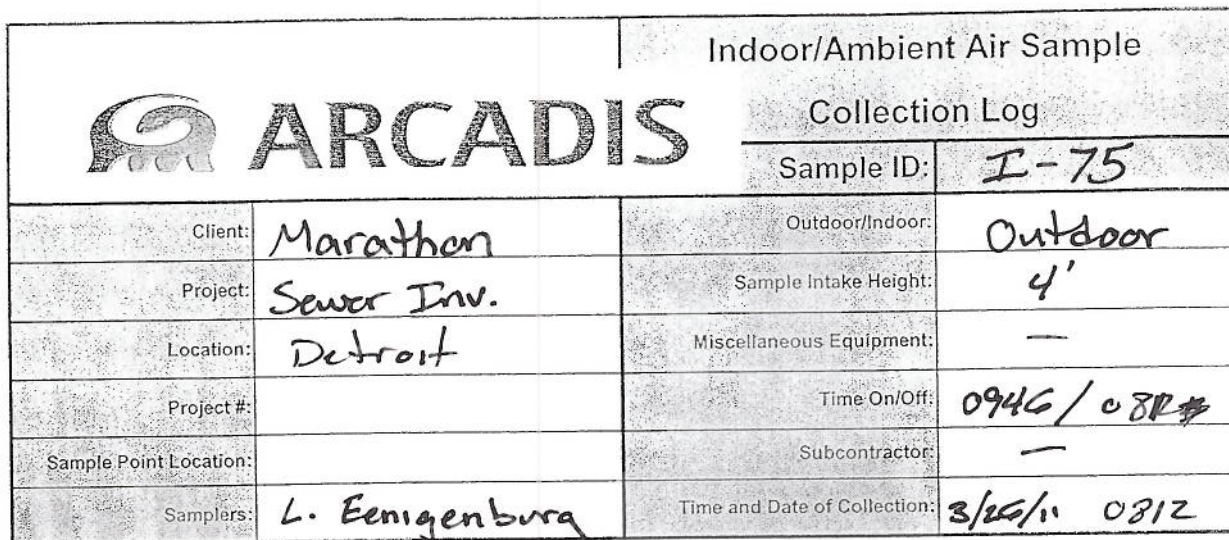 Indoor/Ambient Air Sample
Collection Log
ARCADIS
Sample ID: I-75
Client: Marathon
Outdoor/Indoor: Outdoor
Project: Sewer Inv.
Sample Intake Height: 4'
Location: Detroit
Miscellaneous Equipment: —
Project #:
Time On/Off: 0946 /
Sample Point Location:
Subcontractor: —
Samplers: L. Eenigenburg
Time and Date of Collection: 3/26/11 0812